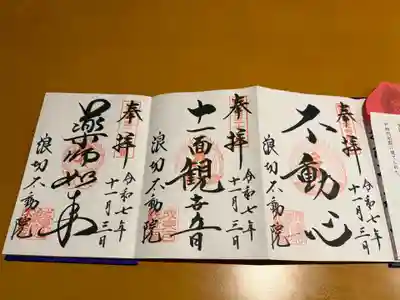 奉拝
令和七年
十一月三日
不動心
浪切不動院
奉拝
令和七年
十一月三日
十一面観音
浪切不動院
奉拝
令和七年
十一月三日
薬師如来
浪切不動院